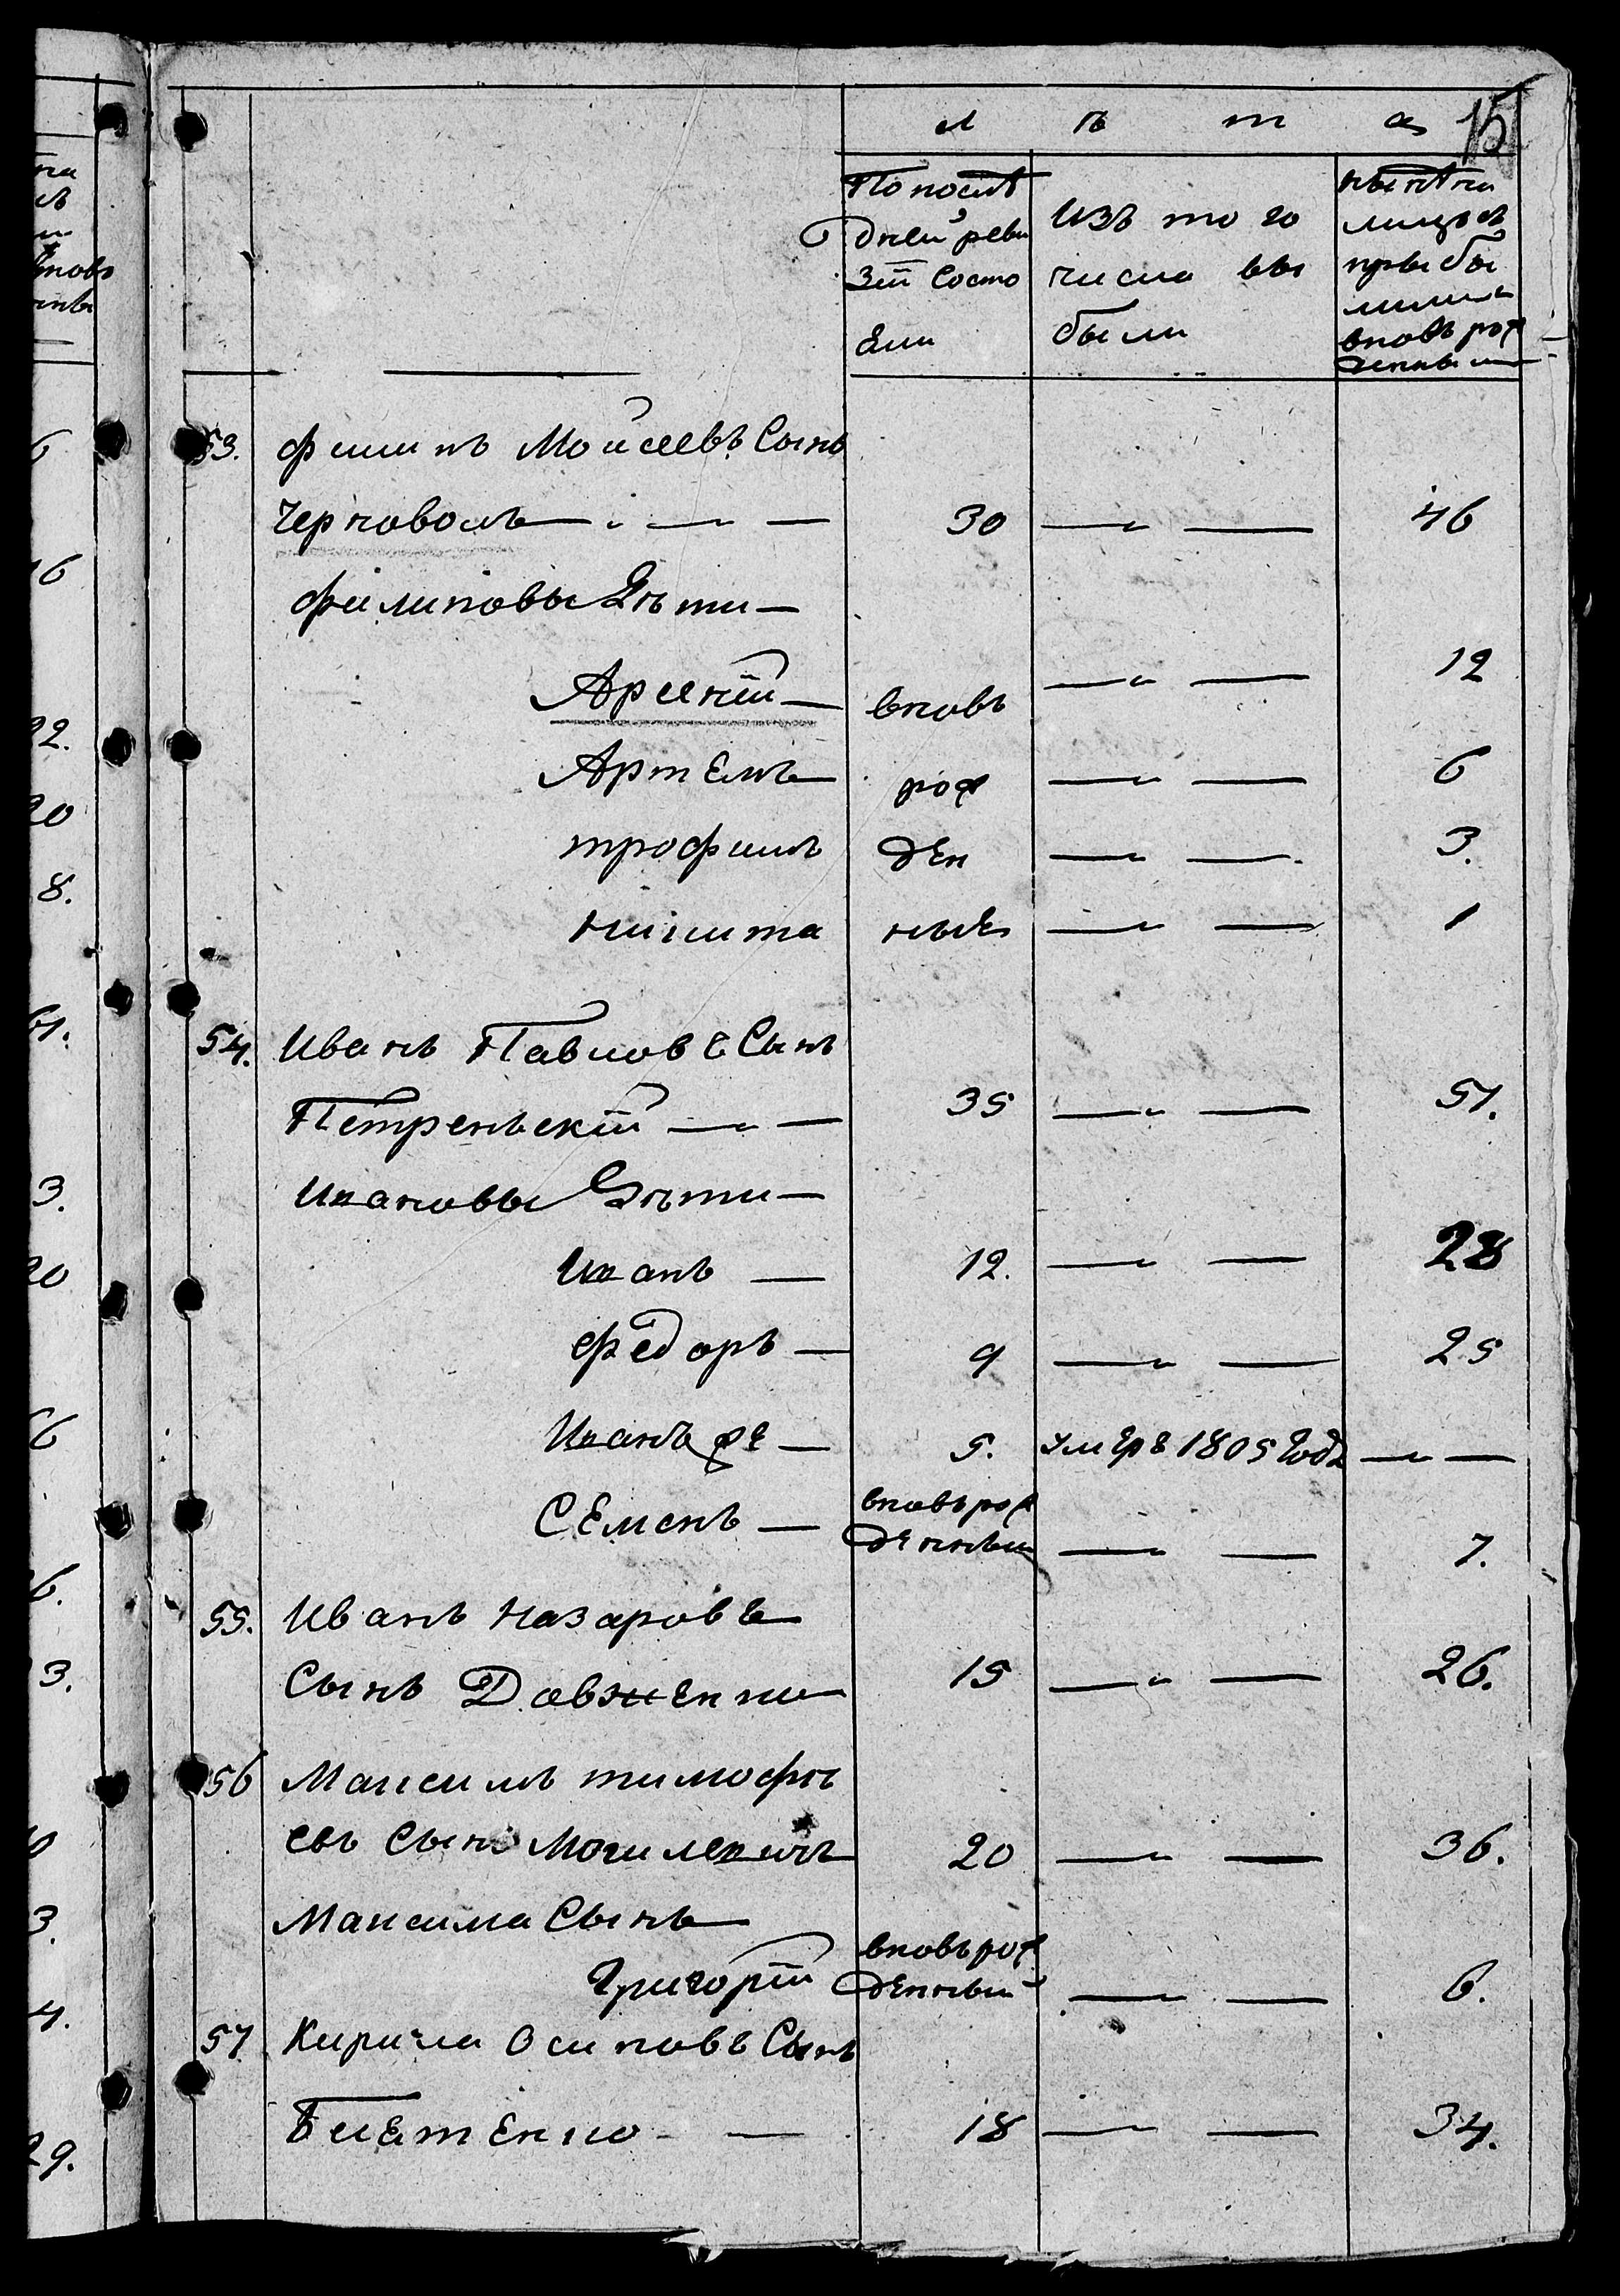 15
л ѣ т а
По послѣ
дней реви
зіи состо
яли
изъ то го
числа вы
были
нынѣ на
лицо съ
прибы
лими и
вновь рож
денными
53. Филипъ Моисеевъ Сынъ
Черноволъ — 30 — — 46
Филиповы Дѣти —
Арсеній — вновь — — 12
Артемъ рож — — 6
трофимъ ден — — 3.
никита ные — — 1
54. Иванъ Павловъ Сынъ
Петренъскій — — 35 — — 51.
Ивановы Дѣти —
Иванъ — 12. — — 28
Федоръ — 9 — — 25
Иванъ же — 5. умеръ 1805 года — —
Семенъ — вновь рож
денный — — 7.
55. Иванъ назаровъ
Сынъ Довженко 15 — — 26.
56 Максимъ тимофѣ
евъ Сынъ Могилевичъ 20 — — 36.
Максима Сынъ
Григорій вновь рож
денный — — 6.
57 Кирила Осиповъ Сынъ
18 — — 34.
6
16
22.
20
8.
61.
3.
20
6.
3.
3.
4.
29.